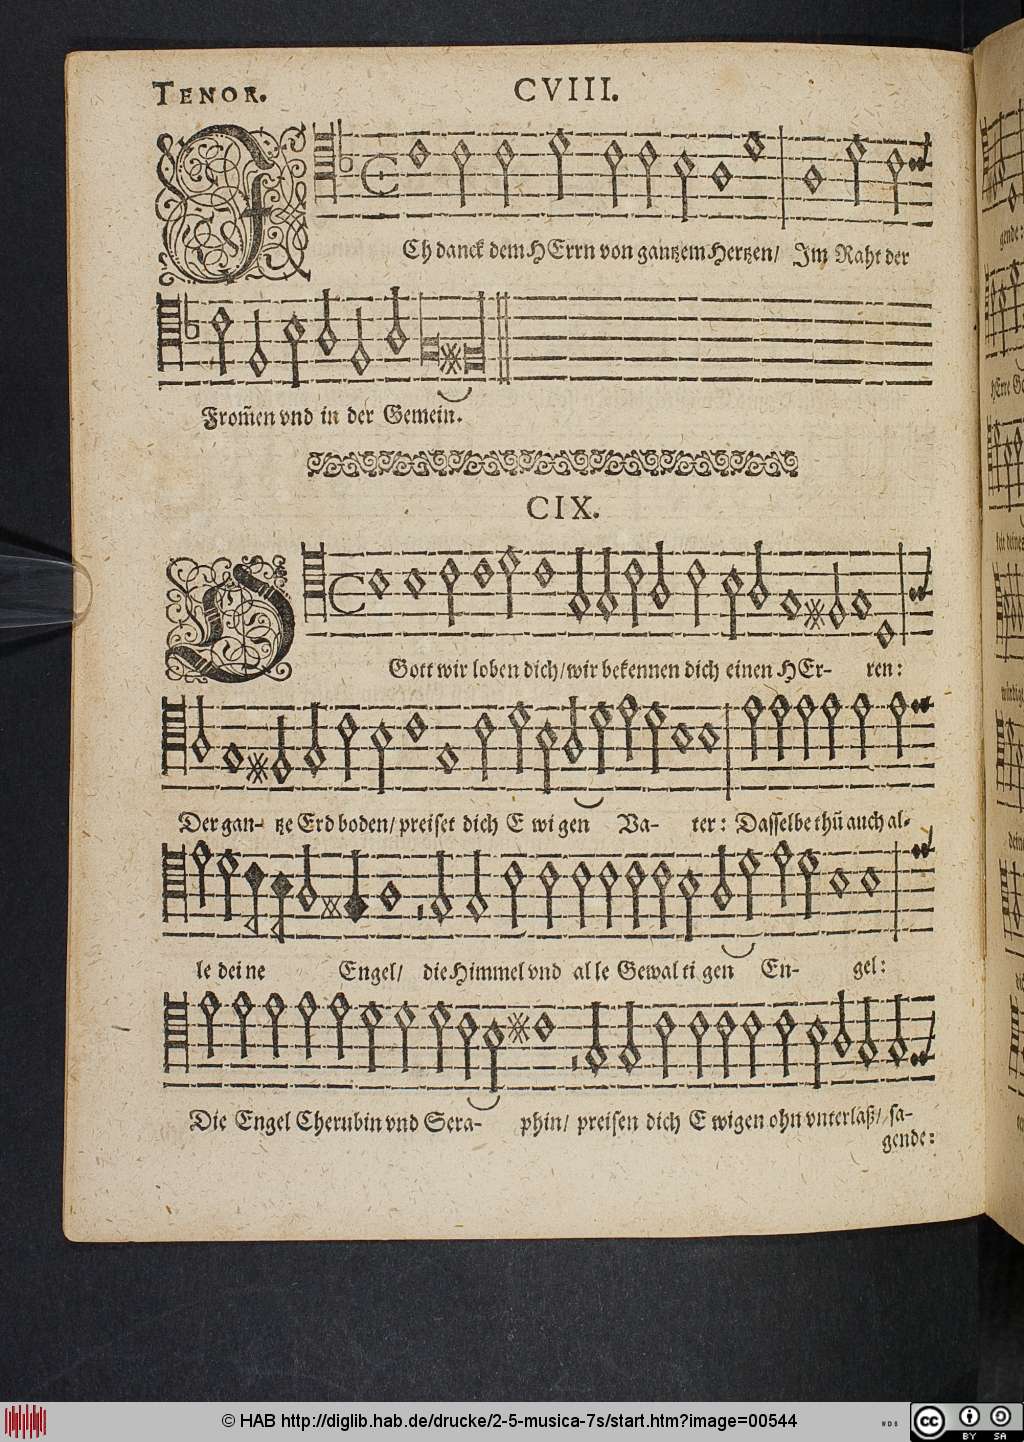 TENOR.
CVIII.
ICh danck dem HErrn von gantzem Hertzen/ Im Raht der
From̃en vnd in der Gemein.
CIX.
O Gott wir loben dich/ wir bekennen dich einen HEr- ren:
Der gan- tze Erdboden/ preiset dich E wi gen Va- ter: Dasselbe thũ auch al-
le dei ne Engel/ die Himmel vnd al le Gewal ti gen En- gel:
Die Engel Cherubin vnd Sera- phin/ preisen dich E wigen ohn vnterlaß/ sa-
gende:
gende:
© HAB http://diglib.hab.de/drucke/2-5-musica-7s/start.htm?image=00544
WDB
cc
BY SA